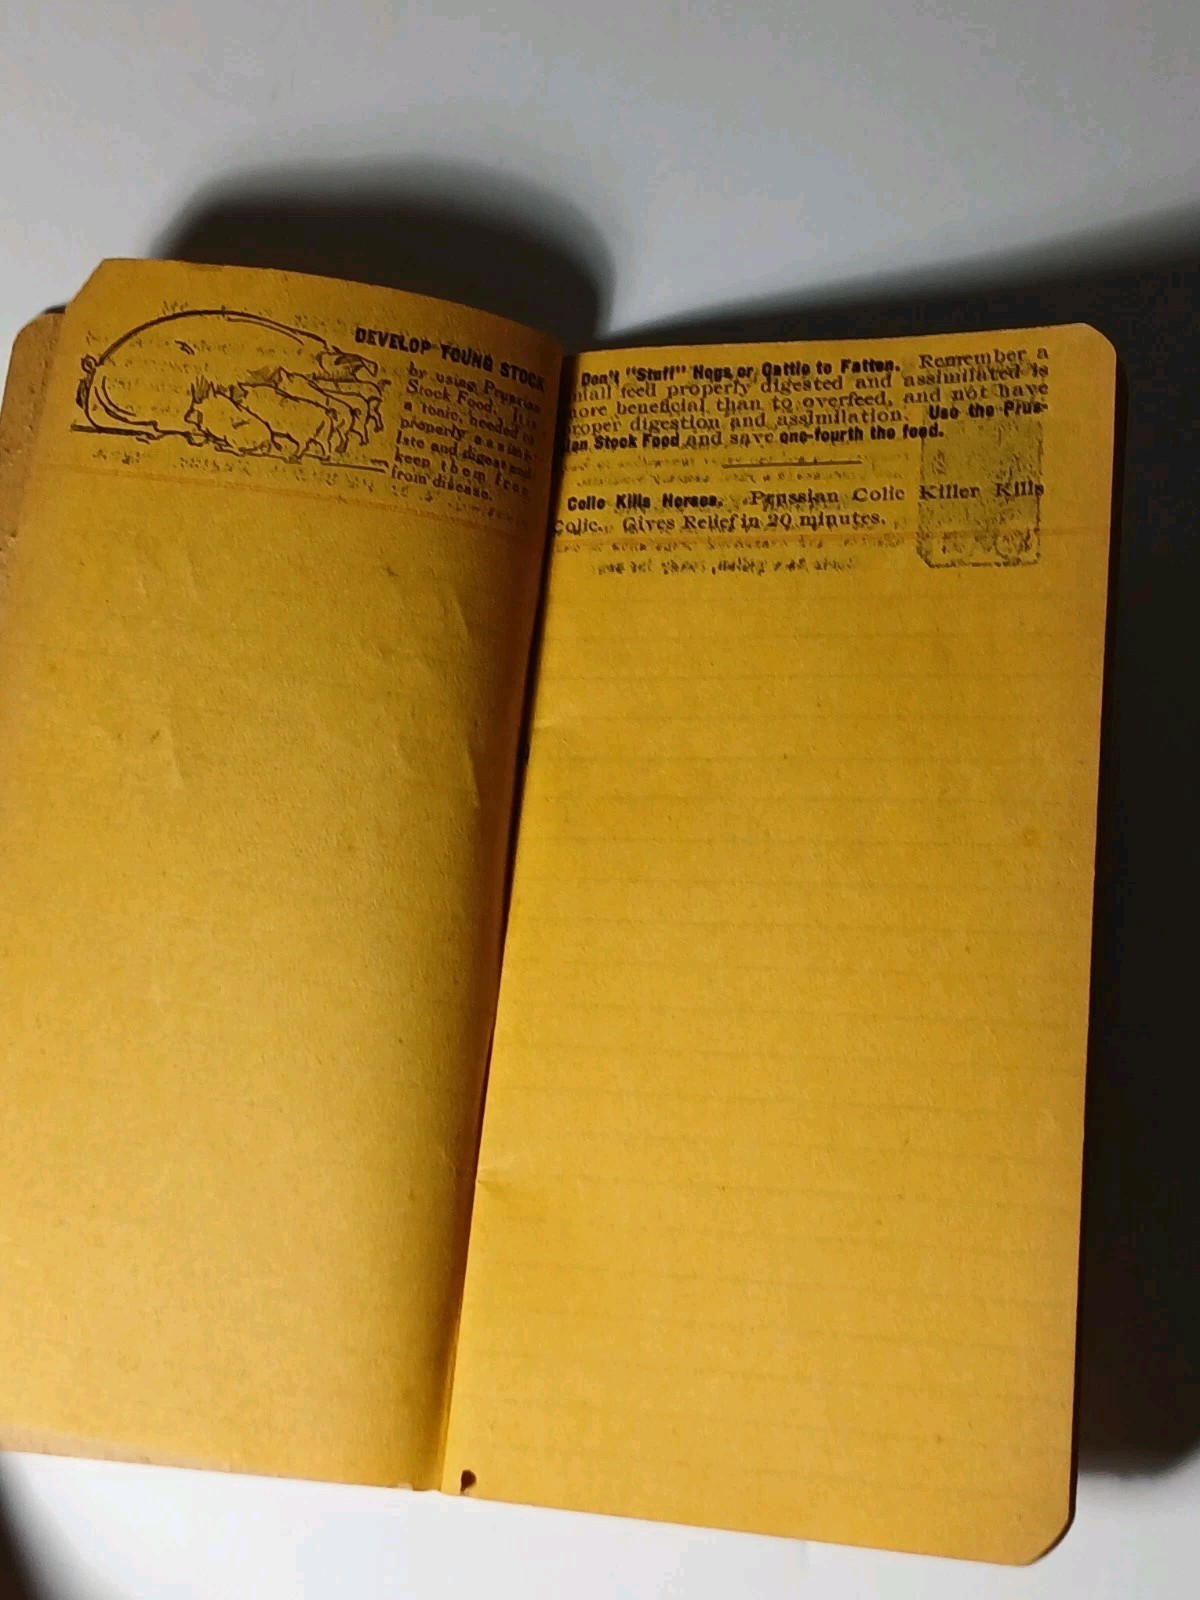 DEVELOP YOUNG STOCK
by using Prussian
Stock Food. It is
a tonic, needed to
properly assimi-
late and digest and
keep them free
from disease.
Don't "Stuff" Hogs or Cattle to Fatten. Remember a
small feed properly digested and assimilated is
more beneficial than to overfeed, and not have
proper digestion and assimilation. Use the Prus-
sian Stock Food and save one-fourth the food.
Colic Kills Horses. Prussian Colic Killer Kills
Colic. Gives Relief in 20 minutes.